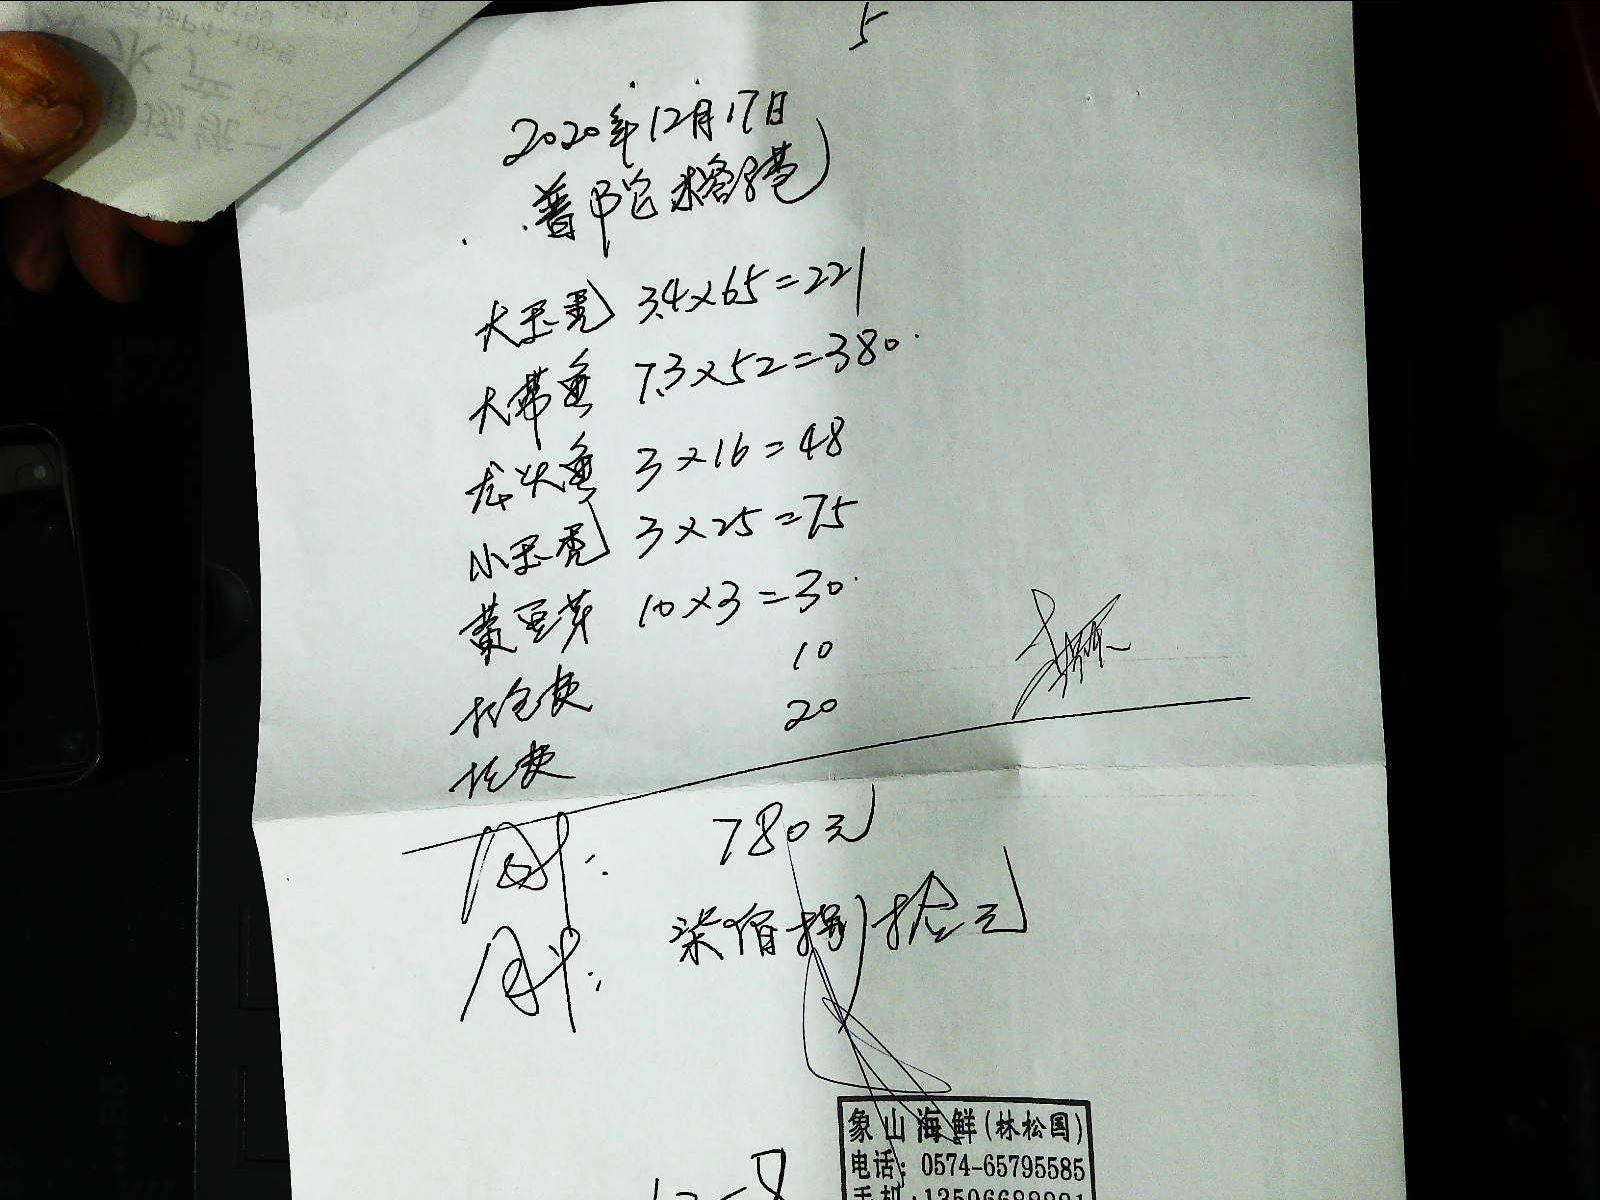 5
2020年12月17日
普陀
大 3.4×65=221
大带鱼 7.3×52=380
龙头鱼 3×16=48
小 3×25=75
黄豆芽 10×3=30
打包费 10
托费 20
合计: 780元
合计: 柒佰捌拾元
象山海鲜(林松国)
电话: 0574-65795585
手机: